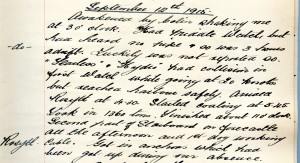 September 10th 1915
Awakened by Colin shaking me
at 3 o'clock. Had Middle Watch, but
had heard no pipe & so was 3 hours
adrift. Luckily was not reported. Do.
-do-
collision in
first Watch while going at 20 knots
but reached harbour safely. Arrived
Rosyth at 4.30. Started coaling at 5.45
Took in 1360 tons. Finished about 10 o'clock
on forecastle
Rosyth
all the afternoon and
cable. Got in anchor which had
been got up during our absence.